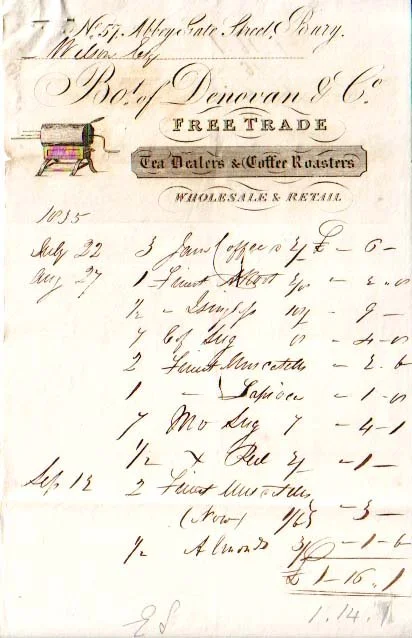 No. 57, Abbey Gate Street, Bury.
Wilson Esq
Bot. of Donovan & Co.
FREE TRADE
Tea Dealers & Coffee Roasters
WHOLESALE & RETAIL
1835
July 22 3 Jam Coffee 2/ £ - 6 -
Aug 27 1 Finest
1/2 - 9 -
7 Sug - 4 -
2 Finest Muscatels - 2. 6
1 - Tapioca - 1 -
7 Mo Sug 7 - 4 - 1
1/2 x Peel 2/ - 1 -
Sep 12 2 Finest Muscatels
(New) 1/6 - 3 -
1/2 Almonds 3/ - 1 - 6
£ 1 - 16 .. 1
1. 14. 1